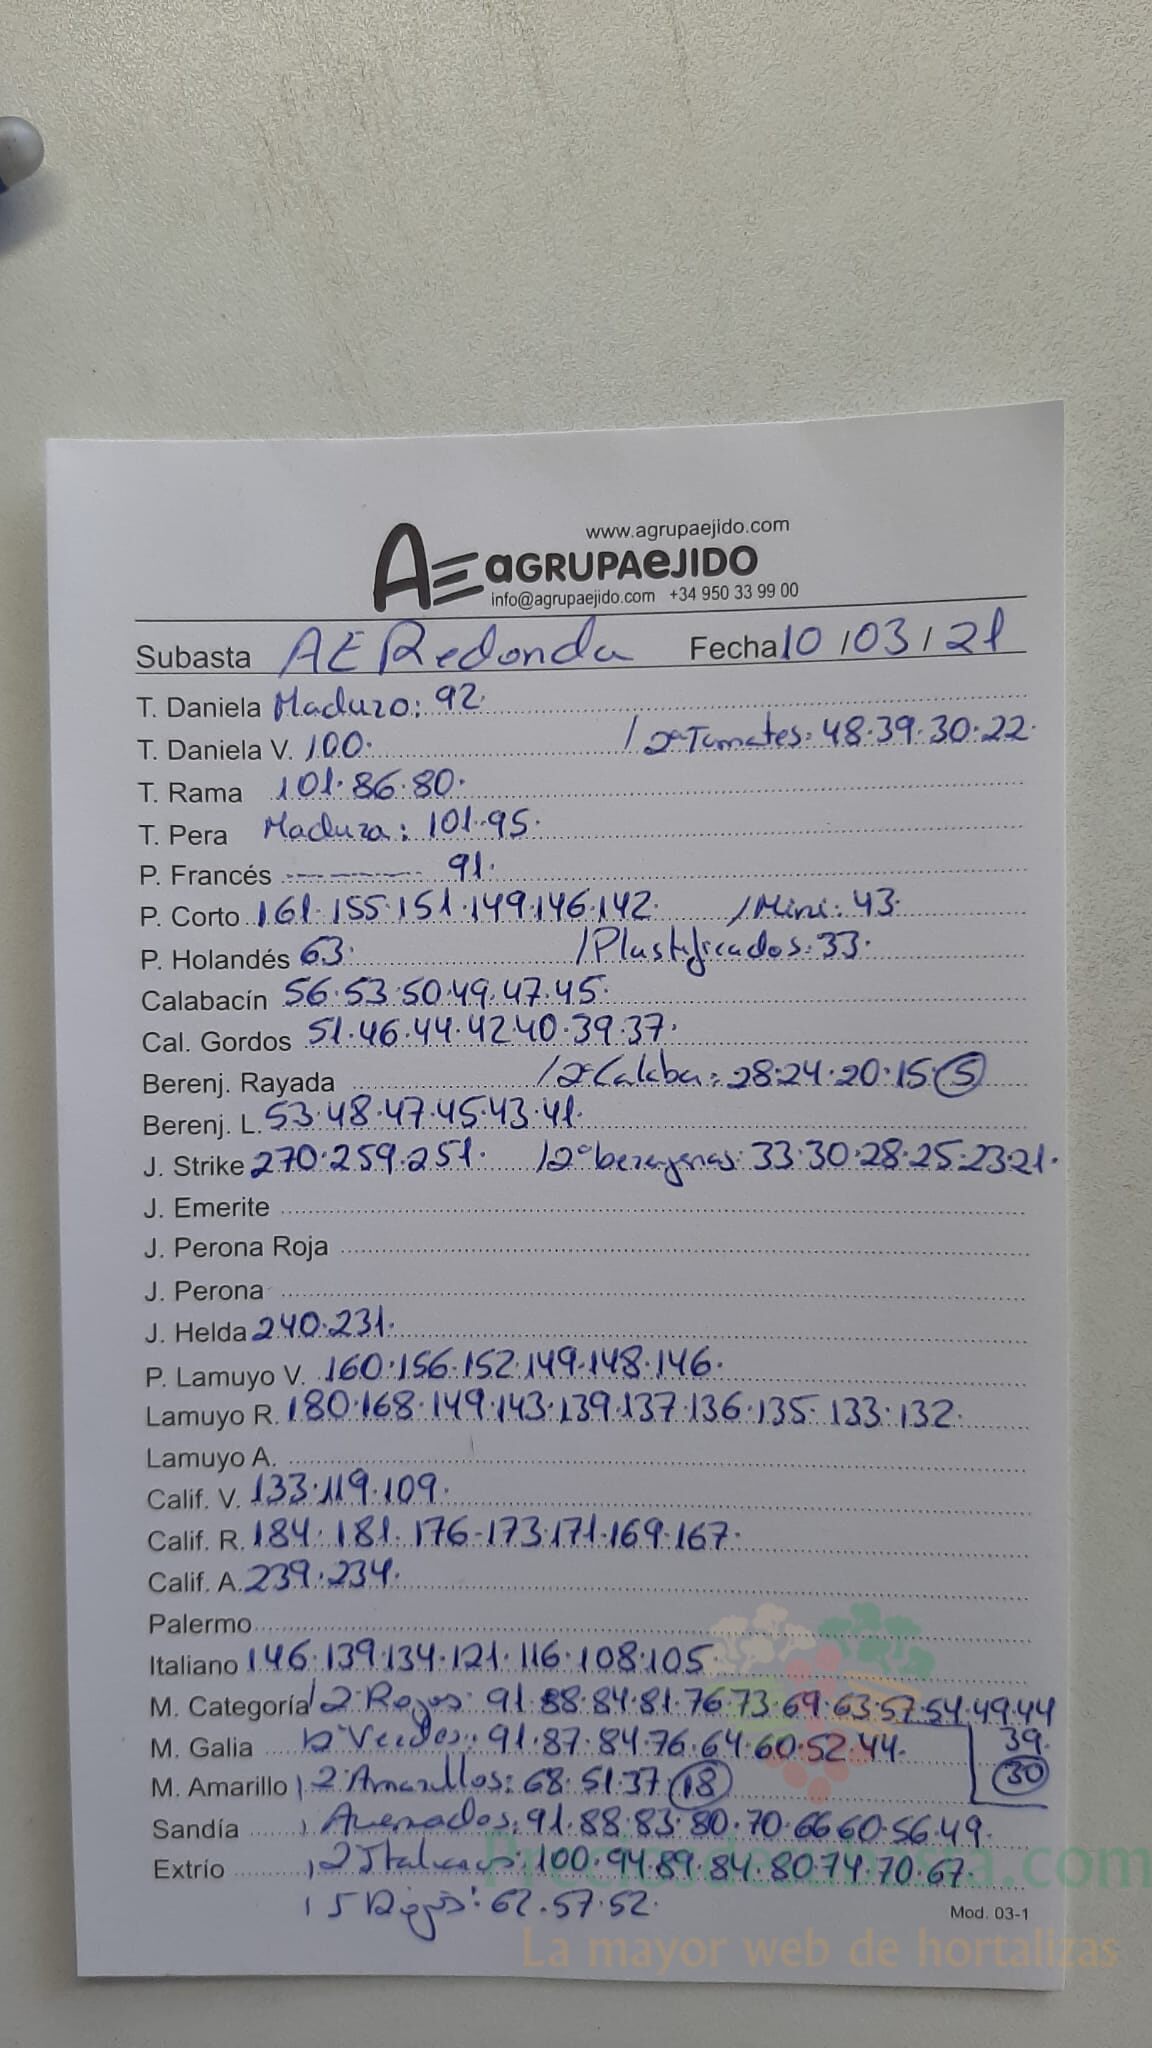 www.agrupaejido.com
AE aGRUPAeJIDO
info@agrupaejido.com +34 950 33 99 00
Subasta AE Redonda Fecha 10/03/21
T. Daniela Maduro: 92.
T. Daniela V. 100. / 2ª Tomates: 48.39.30.22.
T. Rama 101.86.80.
T. Pera Madura: 101.95.
P. Francés ---------- 91.
P. Corto 161.155.151.149.146.142. / Mini: 43.
P. Holandés 63. / Plastificados: 33.
Calabacín 56.53.50.49.47.45.
Cal. Gordos 51.46.44.42.40.39.37.
Berenj. Rayada / 2ª Calaba: 28.24.20.15.5
Berenj. L. 53.48.47.45.43.41.
J. Strike 270.259.251. / 2ª berenjenas: 33.30.28.25.23.21.
J. Emerite
J. Perona Roja
J. Perona
J. Helda 240.231.
P. Lamuyo V. 160.156.152.149.148.146.
Lamuyo R. 180.168.149.143.139.137.136.135.133.132.
Lamuyo A.
Calif. V. 133.119.109.
Calif. R. 184.181.176.173.171.169.167.
Calif. A. 239.234.
Palermo
Italiano 146.139.134.121.116.108.105.
M. Categoría / 2ª Rojos: 91.88.84.81.76.73.69.63.57.54.49.44
M. Galia 2ª Verdes: 91.87.84.76.64.60.52.44. 39.
M. Amarillo / 2ª Amarillos: 68.51.37.18 30
Sandía / Asurcados: 91.88.83.80.70.66.60.56.49.
Extrío / 2ª Italianos: 100.94.89.84.80.74.70.67.
/ 5 Rojos: 62.57.52.
Mod. 03-1
Preciosdesubasta.com
La mayor web de hortalizas